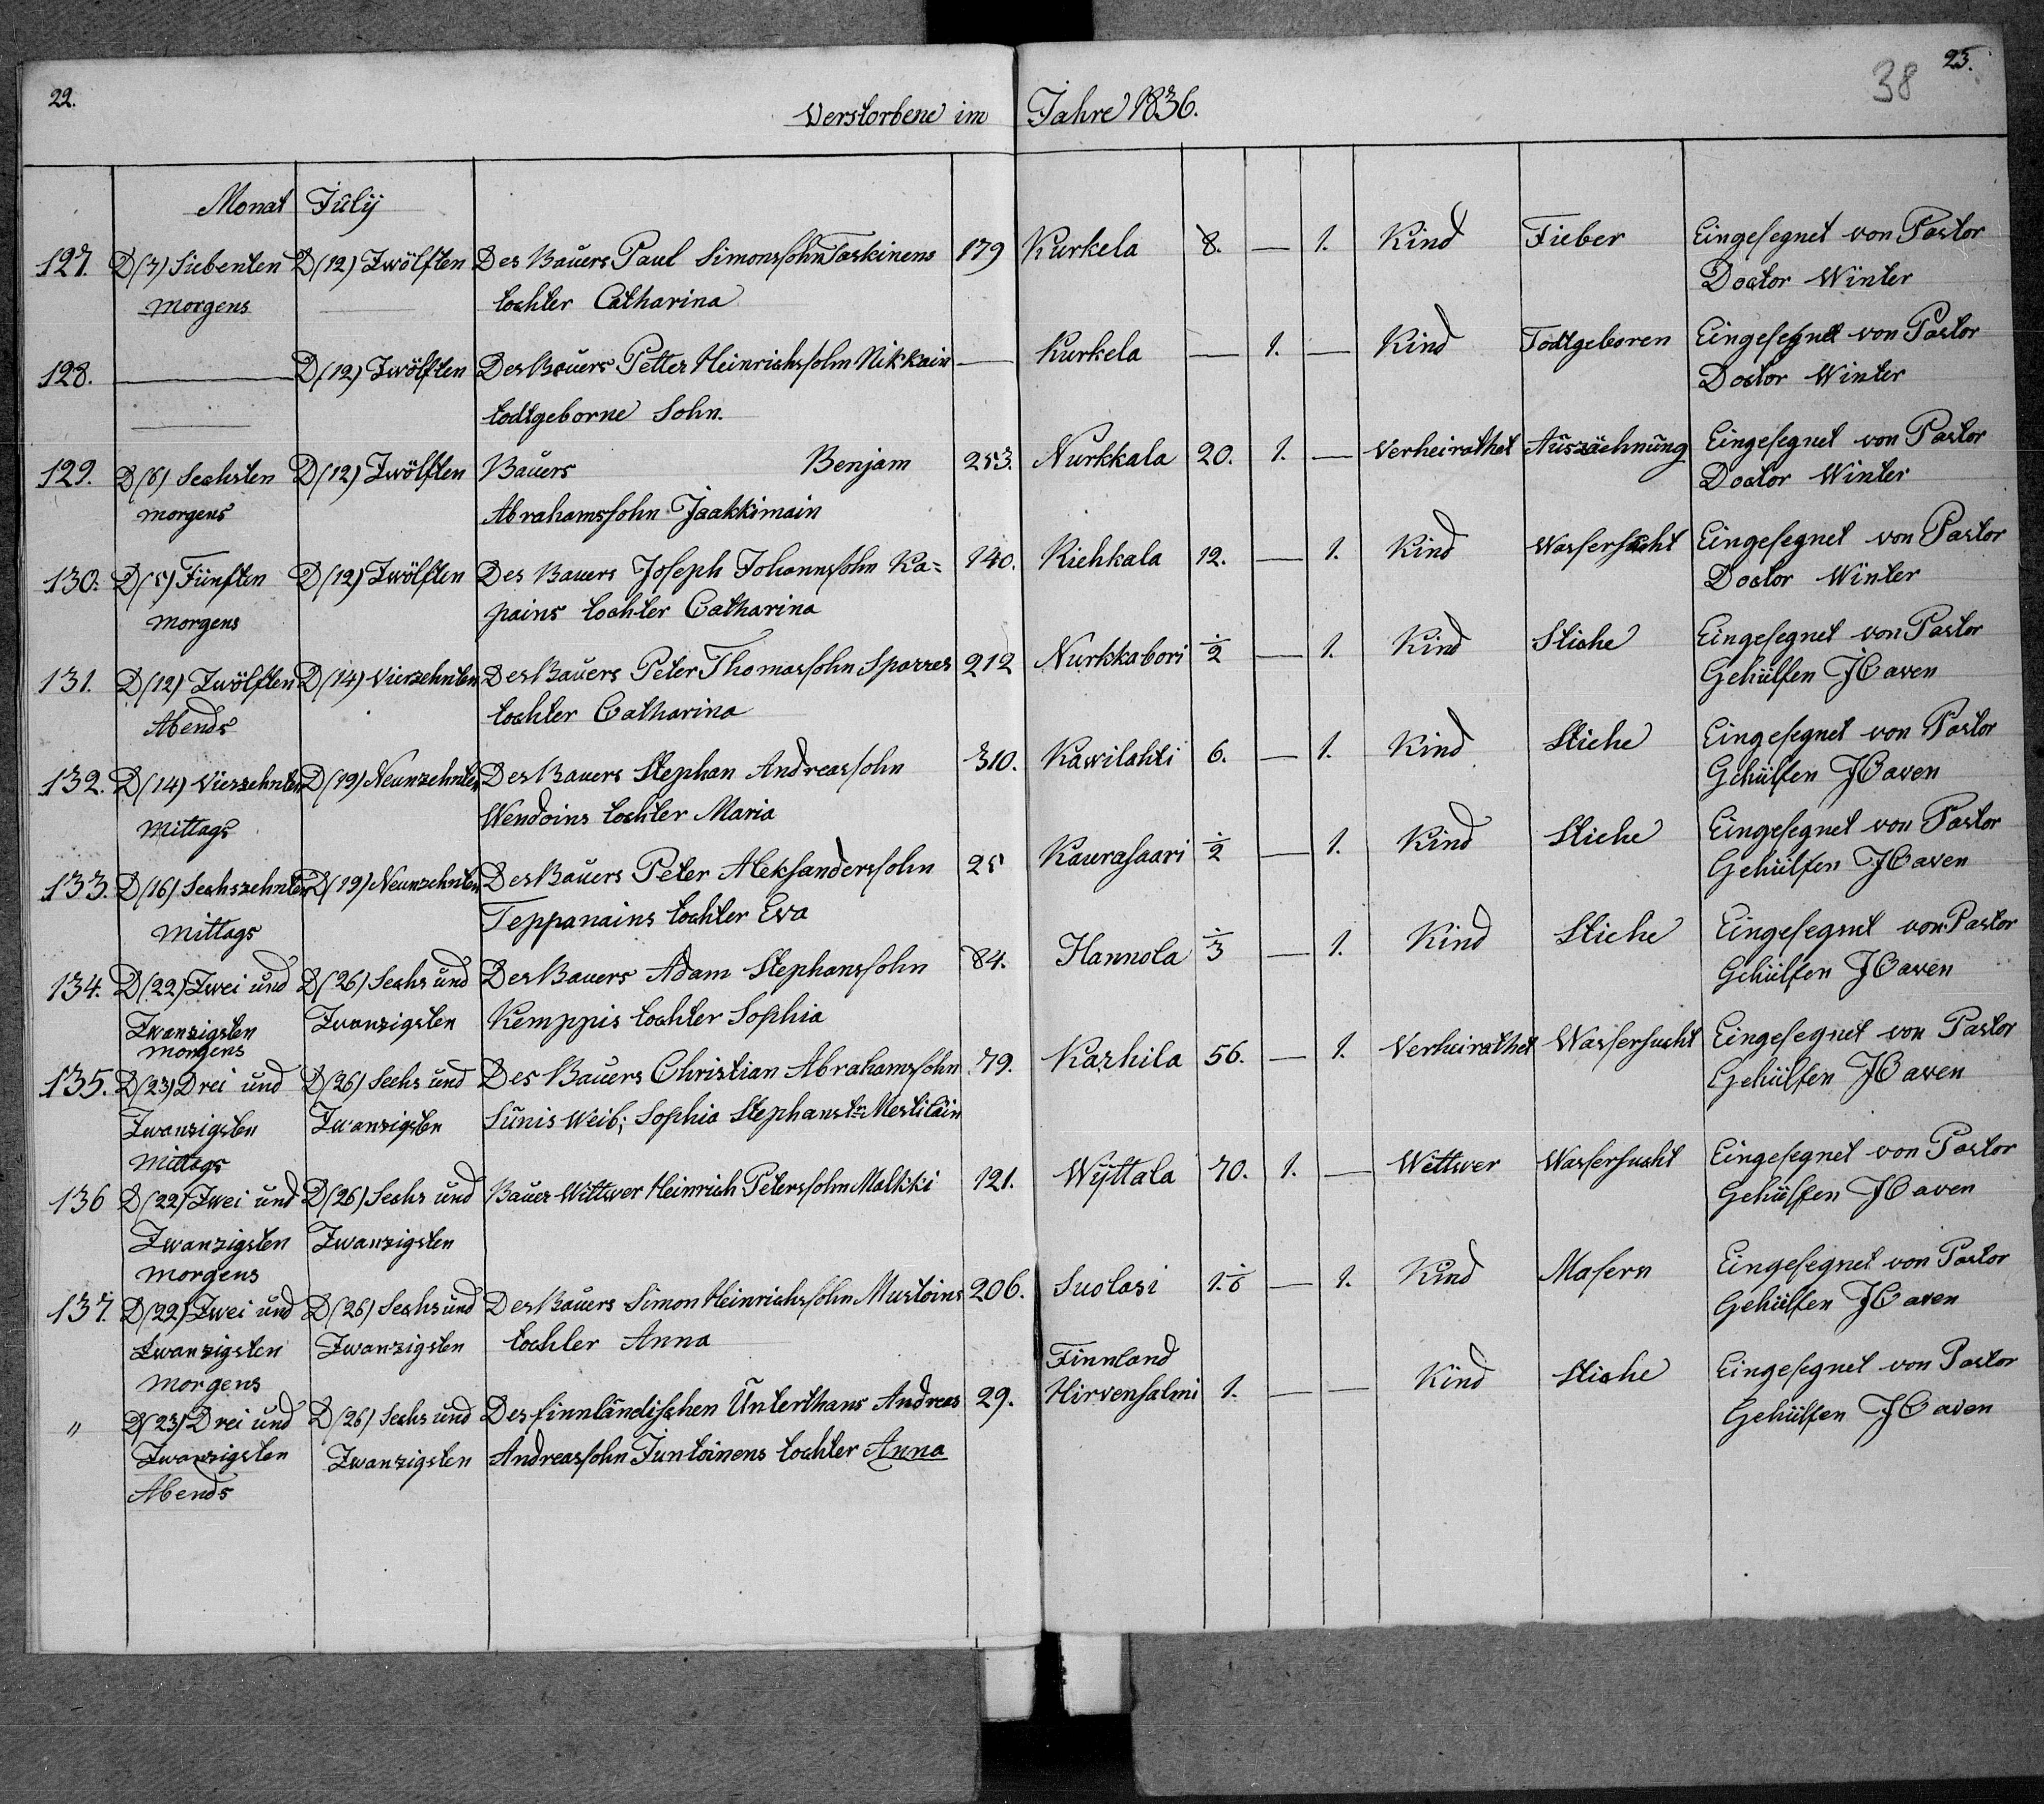 22.
23.
38
Verstorbene im Jahre 1836.
Monat July
127. D(7) Siebenten D(12) Zwölften Des Bauers Paul Simonssohn Taskinens 179 Kurkela 8. — 1. Kind Fieber Eingesegnet von Pastor
morgens tochter Catharina Doctor Winter
128. — D(12) Zwölften Des Bauers Petter Heinrichssohn Nikkain — Kurkela — 1. — Kind Todtgeboren Eingesegnet von Pastor
todtgeborne Sohn. Doctor Winter
129. D(6) Sechsten D(12) Zwölften Bauers Benjam 253. Nurkkala 20. 1. — Verheirathet Auszäehnung Eingesegnet von Pastor
morgens Abrahamssohn Jaakkimain Doctor Winter
130. D(5) Fünften D(12) Zwölften Des Bauers Joseph Johannssohn Ka= 140. Riehkala 12. — 1. Kind Wassersucht Eingesegnet von Pastor
morgens pains tochter Catharina Doctor Winter
131. D(12) Zwölften D(14) Vierzehnten Des Bauers Peter Thomassohn Sparres 212 Nurkkabori ½ — 1. Kind Stiche Eingesegnet von Pastor
Abends tochter Catharina Gehülfen Haven
132. D(14) Vierzehnten D(19) Neunzehnten Des Bauers Stephan Andreassohn 310. Kawilahti 6. — 1. Kind Stiche Eingesegnet von Pastor
Mittags Wendoins tochter Maria Gehülfen Haven
133. D(16) Sechszehnten D(19) Neunzehnten Des Bauers Peter Aleksanderssohn 25 Kaurasaari ½ — 1. Kind Stiche Eingesegnet von Pastor
Mittags Teppanains tochter Eva Gehülfen Haven
134. D(22) Zwei und D(26) Sechs und Des Bauers Adam Stephanssohn 84. Hannola ⅓ — 1. Kind Stiche Eingesegnet von Pastor
Zwanzigsten Zwanzigsten Kemppis tochter Sophia Gehülfen Haven
morgens
135. D(23) Drei und D(26) Sechs und Des Bauers Christian Abrahamssohn 79. Karhila 56. — 1. Verheirathet Wassersucht Eingesegnet von Pastor
Zwanzigsten Zwanzigsten Sunis Weib; Sophia Stephanst: Mestiläin Gehülfen Haven
Mittags
136 D(22) Zwei und D(26) Sechs und Bauer Wittwer Heinrich Peterssohn Malkki 121. Wyttala 70. 1. — Wittwer Wassersucht Eingesegnet von Pastor
Zwanzigsten Zwanzigsten Gehülfen Haven
morgens
137. D(22) Zwei und D(26) Sechs und Des Bauers Simon Heinrichssohn Mustoins 206. Suolasi — 1. Kind Masern Eingesegnet von Pastor
Zwanzigsten Zwanzigsten tochter Anna Gehülfen Haven
morgens Finnland
" D(23) Drei und D(26) Sechs und Des finnländischen Unterthans Andreas 29. Hirvensalmi 1. — — Kind Stiche Eingesegnet von Pastor
Zwanzigsten Zwanzigsten Andreassohn Juntoinens tochter Anna Gehülfen Haven
Abends